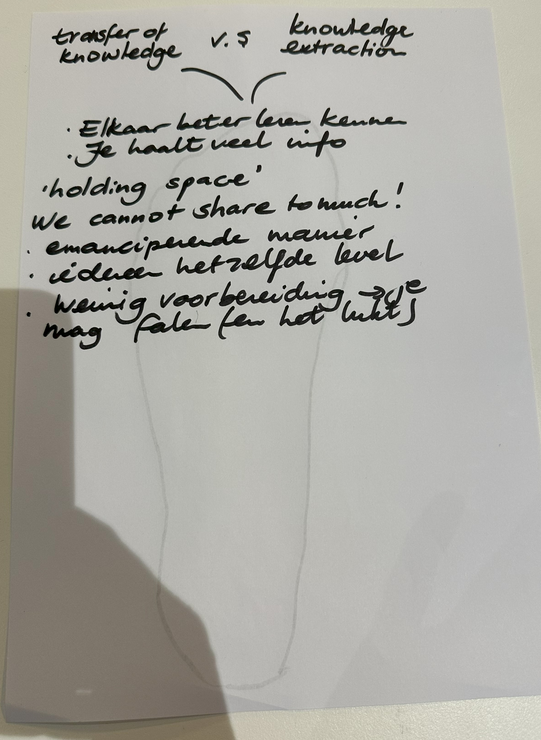 transfer of knowledge v.s knowledge extraction
· Elkaar beter leren kennen
· Je haalt veel info
'holding space'
We cannot share to much!
· emanciperende manier
· iedereen hetzelfde level
· weinig voorbereiding → je
mag falen (en het lukt)